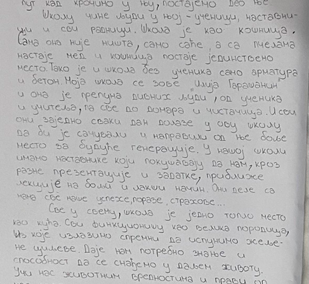 пут кад крочимо у њу, постајемо део ње.
Школу чине људи у њој - ученици, наставни-
ци и сви радници. Школа је као кошница.
Сама она није ништа, само саће, а са пчелама
настаје мед и кошница постаје јединствено
место. Тако је и школа без ученика само арматура
и бетон. Моја школа се зове "Илија Гарашанин"
и она је препуна дивних људи, од ученика
и учитеља, па све до домара и чистачица. И сви
они заједно сваки дан долазе у ову школу
да би је сачували и направили од ње боље
место за будуће генерације. У нашој школи
имамо наставнике који покушавају да нам, кроз
разне презентације и задатке, приближе
лекције на бољи и лакши начин. Они деле са
нама све наше успехе, поразе, страхове...
Све у свему, школа је једно топло место
као кућа. Сви функционишу као велика породица,
из које излазимо спремни да испунимо жеље-
не циљеве. Даје нам потребно знање и
способност да се снађемо у даљем животу.
Учи нас животним вредностима и прави од